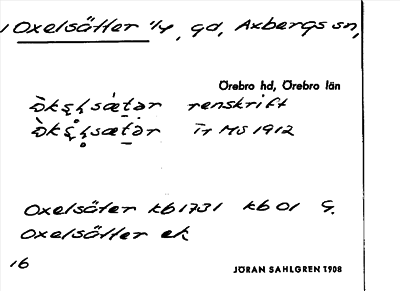 Oxelsätter 1/4, gd, Axbergs sn,
Örebro hd, Örebro län
renskrift
MS 1912
Oxelsäter kb 1731 kb 01 G.
Oxelsätter ek
16
JÖRAN SAHLGREN 1908